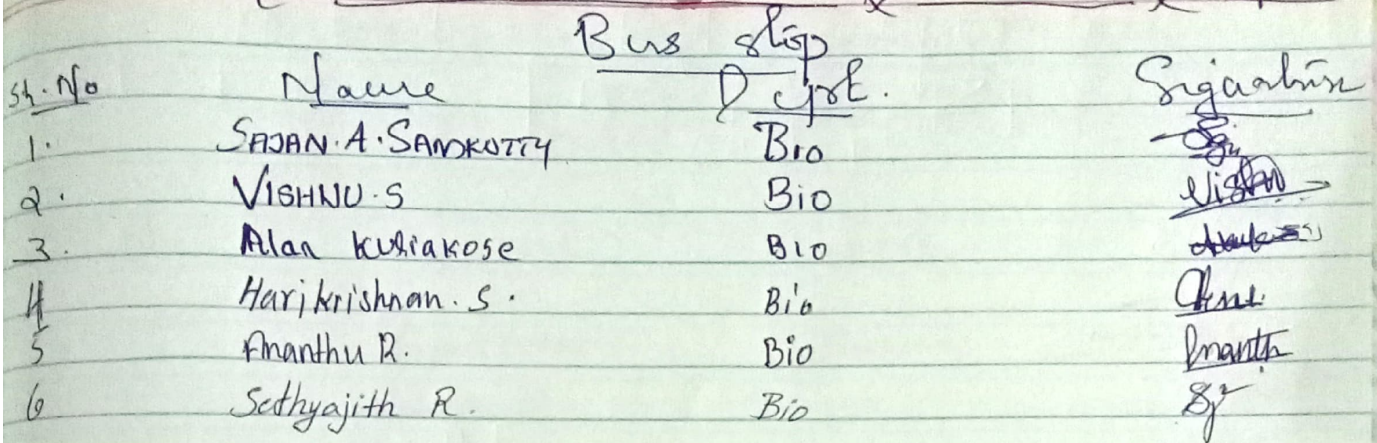 Bus stop
Sl. No Name Dept. Signature
1. SAJAN. A. SAMKUTTY Bio
2. VISHNU. S Bio Vishnu
3. Alan Kuriakose Bio
4 Harikrishnan. S. Bio
5 Ananthu R. Bio Ananth
6 Sethyajith R. Bio